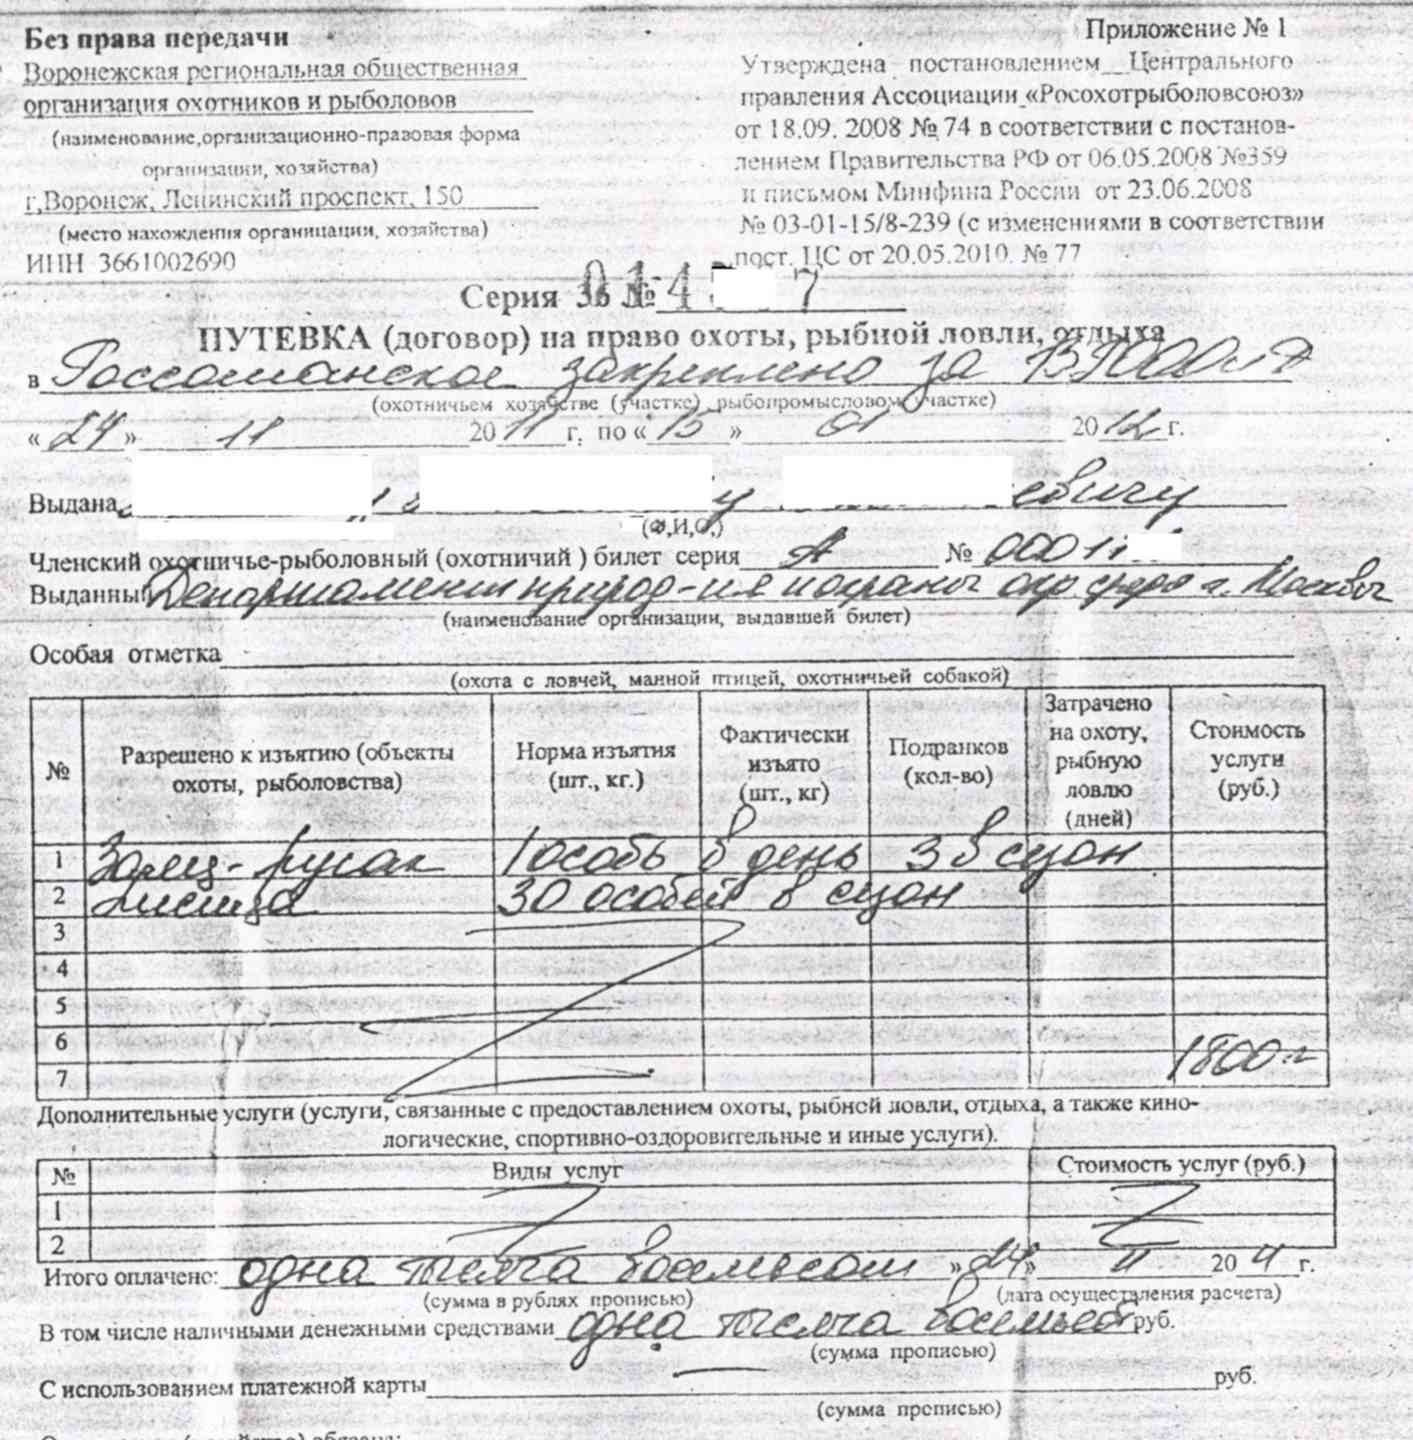 Без права передачи
Приложение № 1
Воронежская региональная общественная
организация охотников и рыболовов
(наименование,организационно-правовая форма
организации, хозяйства)
г,Воронеж, Ленинский проспект, 150
(место нахождения органицации, хозяйства)
ИНН 3661002690
Утверждена постановлением Центрального
правления Ассоциации «Росохотрыболовсоюз»
от 18.09. 2008 № 74 в соответствии с постанов-
лением Правительства РФ от 06.05.2008 №359
и письмом Минфина России от 23.06.2008
№ 03-01-15/8-239 (с изменениями в соответствии
пост. ЦС от 20.05.2010. № 77
Серия 36 № 014 7
ПУТЕВКА (договор) на право охоты, рыбной ловли, отдыха
в Россошанское закреплено за ВРООО
(охотничьем хозяйстве (участке) рыбопромысловом участке)
« 24 » 11 2011 г, по « 15 » 01 2012 г.
Выдана у евичу
(Ф,И,О,)
Членский охотничье-рыболовный (охотничий ) билет серия А № 00011
Выданный Департамент природ-ия и охраны окр. среды г. Москвы
(наименование организации, выдавшей билет)
Особая отметка
(охота с ловчей, манной птицей, охотничьей собакой)
№ Разрешено к изъятию (объекты охоты, рыболовства) Норма изъятия (шт., кг.) Фактически изъято (шт., кг) Подранков (кол-во) Затрачено на охоту, рыбную ловлю (дней) Стоимость услуги (руб.)
1 Заяц-русак 1 особь в день 3 в сезон
2 Лисица 30 особей в сезон
3
4
5
6
7 1800
Дополнительные услуги (услуги, связанные с предоставлением охоты, рыбной ловли, отдыха, а также кино-
логические, спортивно-оздоровительные и иные услуги).
№ Виды услуг Стоимость услуг (руб.)
1
2
Итого оплачено: одна тысяча восемьсот » 24 » 11 2011 г.
(сумма в рублях прописью) (дата осуществления расчета)
В том числе наличными денежными средствами одна тысяча восемьсот руб.
(сумма прописью)
С использованием платежной карты — руб.
(сумма прописью)